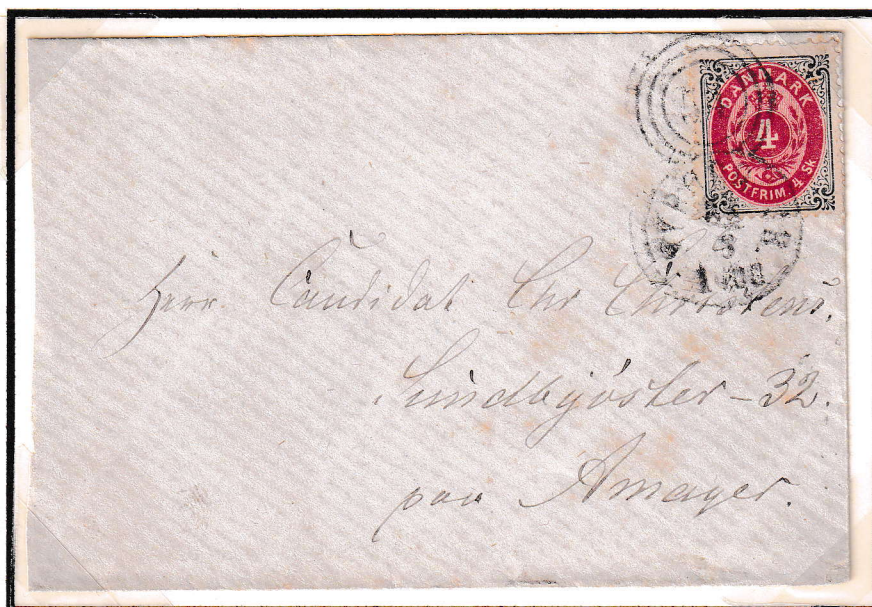 DANMARK
4
POSTFRIM. 4 SK
Herr Candidat Chr Christens.
Sundbyöster - 32.
paa Amager.